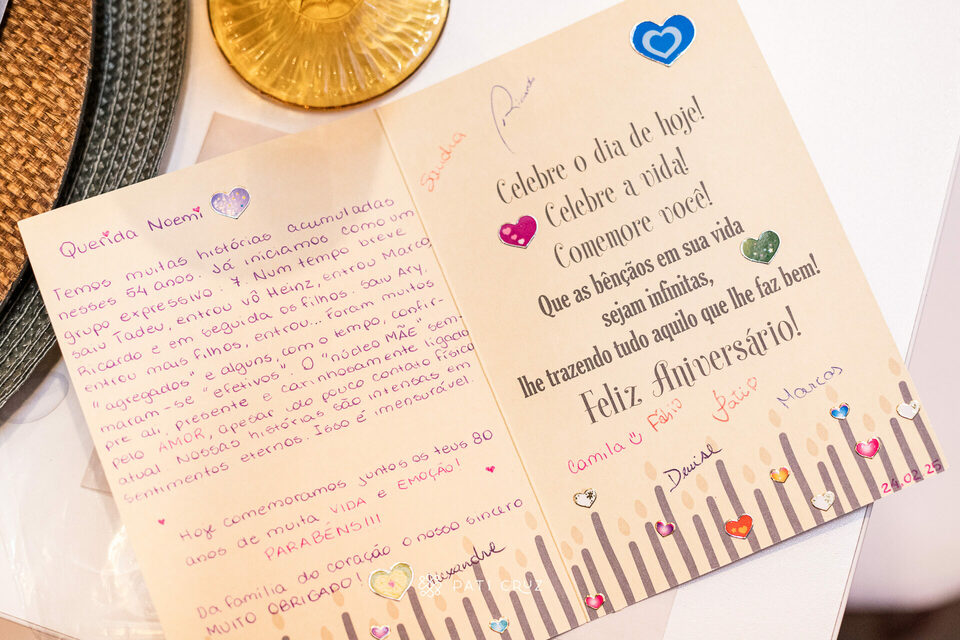 Querida Noemi
Temos muitas histórias acumuladas
nesses 54 anos. Já iniciamos como um
grupo expressivo: 7. Num tempo breve
saiu Tadeu, entrou vô Heinz, entrou Marco,
Ricardo e em seguida os filhos. Saiu Ary,
entrou mais filhos, entrou... Foram muitos
"agregados" e alguns, com o tempo, confir-
maram-se "efetivos". O "núcleo MÃE" sem-
pre ali, presente e carinhosamente ligado
pelo AMOR, apesar do pouco contato físico
atual. Nossas histórias são intensas em
sentimentos eternos. Isso é imensurável.
Hoje comemoramos juntos os teus 80
anos de muita VIDA e EMOÇÃO!
PARABÉNS!!!
Da família do coração o nosso sincero
MUITO OBRIGADO!
Alexandre
Sandra
Ricardo
Celebre o dia de hoje!
Celebre a vida!
Comemore você!
Que as bênçãos em sua vida
sejam infinitas,
lhe trazendo tudo aquilo que lhe faz bem!
Feliz Aniversário!
Camila Fábio Patio Marcos
Denise
24.02.25
PATI CRUZ